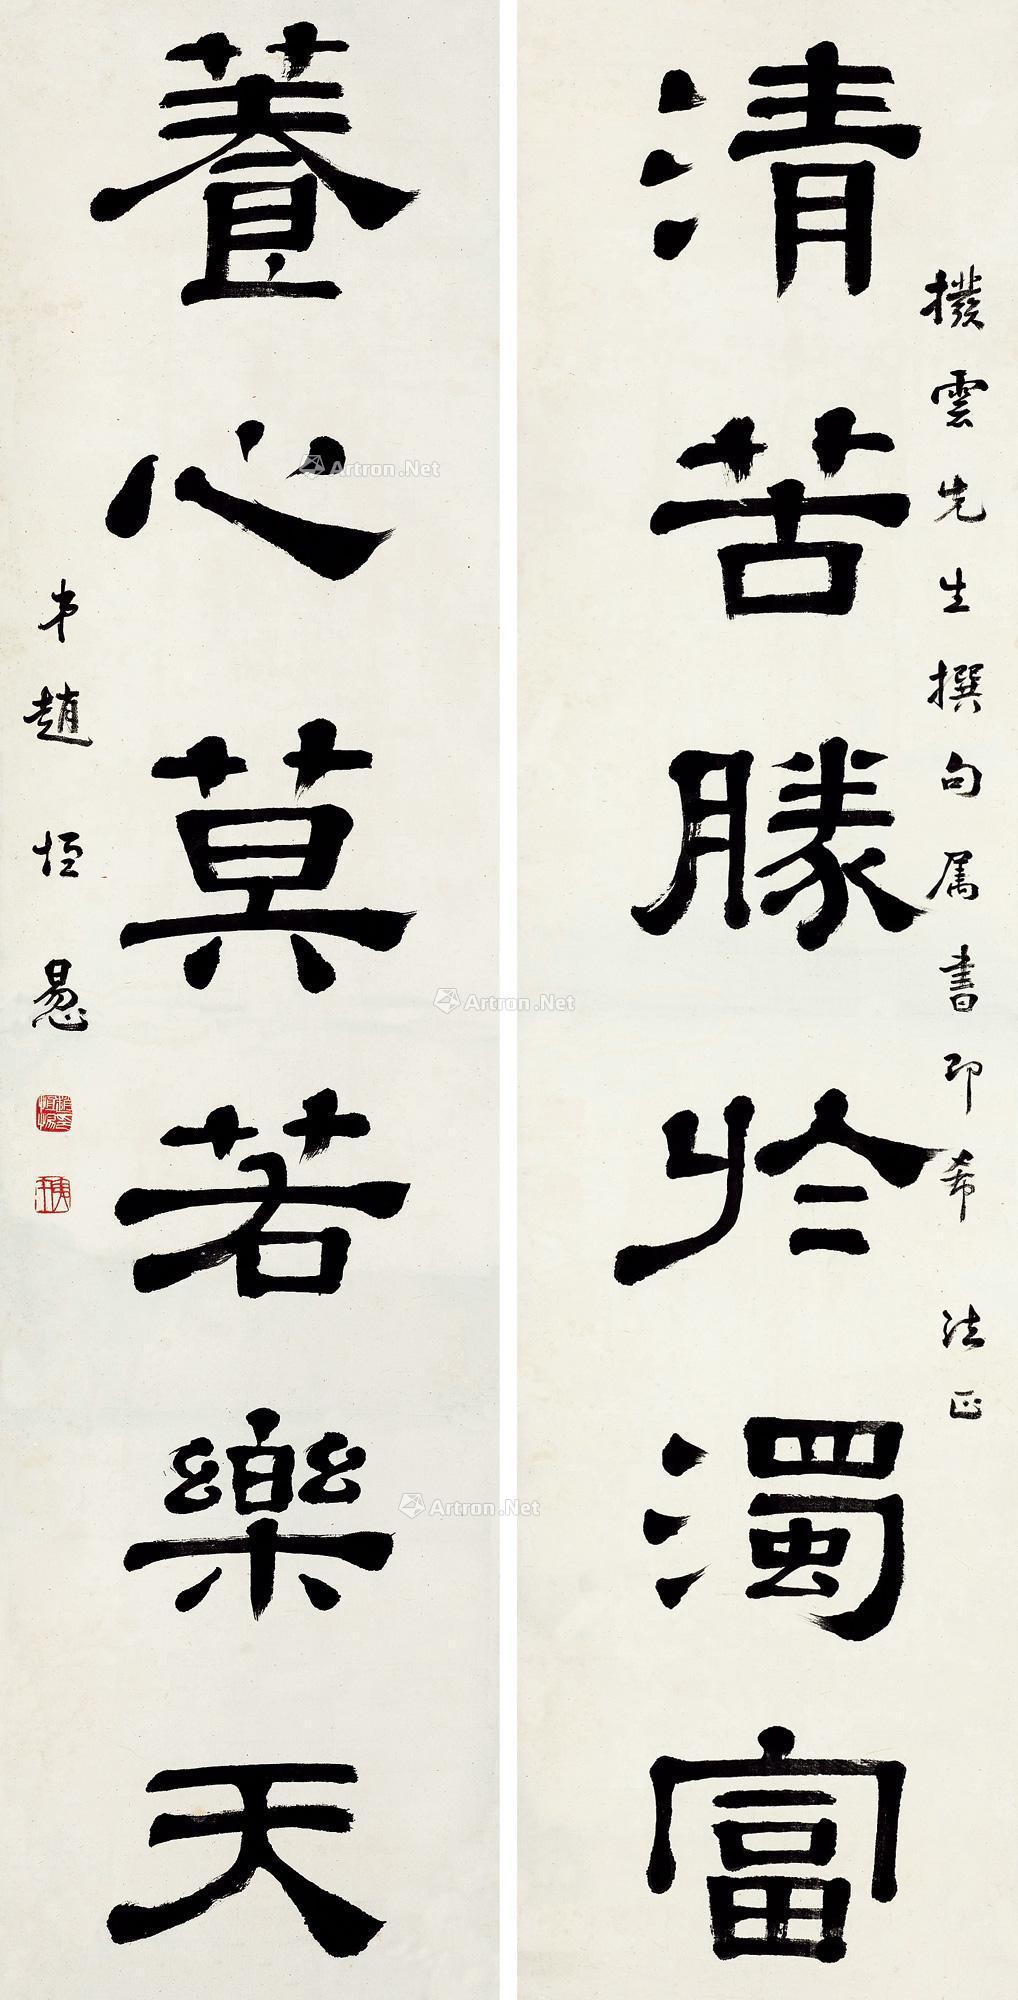 撥雲先生撰句属書即希 法正
清苦勝於濁富
養心莫若樂天
弟趙恒惖
Artron.Net
Artron.Net
Artron.Net